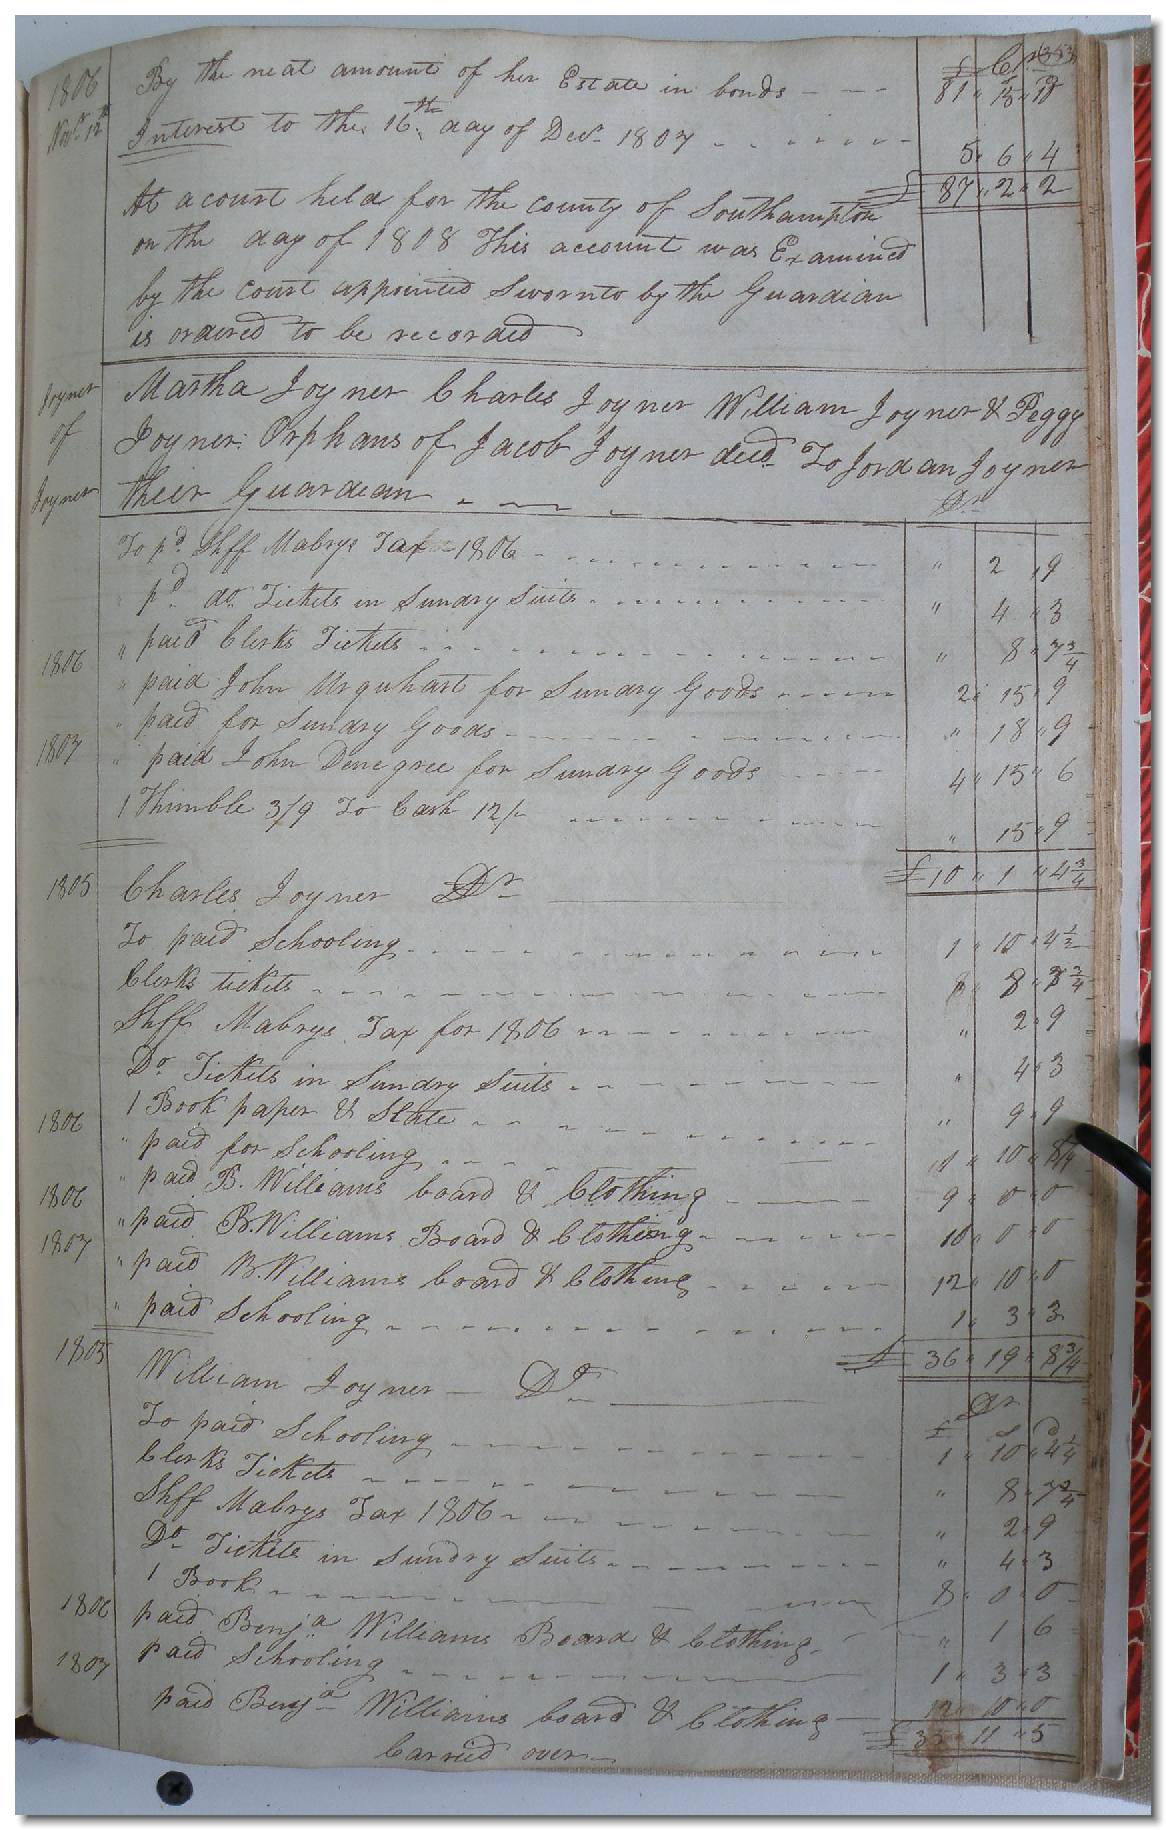 Cr 353
1806 By the neat amount of her Estate in bonds - - - 81 " 15 " 10
Novr 12th Interest to the 16th day of Decr 1807 - - - 5 " 6 " 4
£ 87 " 2 " 2
At a court held for the county of Southampton
on the day of 1808 This account was Examined
by the court appointed Sworn to by the Guardian
is ordered to be recorded
Joyner Martha Joyner Charles Joyner William Joyner & Peggy
of Joyner Orphans of Jacob Joyner decd To Jordan Joyner
Joyner their Guardian - - - Dr
To pd Shff Mabrys Tax 1806 - - - " 2 " 9
" pd do Tickets in Sundry Suits - - - " 4 " 3
1806 " paid Clerks Tickets - - - " 8 " 7 3/4
" paid John Urquhart for Sundry Goods - - - 2 " 15 " 9
" paid for Sundry Goods - - - " 18 " 9
1807 " paid John Denegree for Sundry Goods - - - 4 " 15 " 6
1 Thimble 3/9 To Cash 12/- - - - " 15 " 9
£ 10 " 1 " 4 3/4
1805 Charles Joyner Dr
To paid Schooling - - - 1 " 10 " 4 1/2
Clerks tickets - - - 8 " 7 3/4
Shff Mabrys Tax for 1806 - - - " 2 " 9
Do Tickets in Sundry Suits - - - " 4 " 3
1 Book paper & Slate - - - " 9 " 9
1806 " paid for Schooling - - - 10
" paid B. Williams board & Clothing - - - 9 " 0 " 0
1806 " paid B. Williams Board & Clothing - - - 10 " 0 " 0
1807 " paid B. Williams board & Clothing - - - 12 " 10 " 0
" paid Schooling - - - 1 " 3 " 3
£ 36 " 19 " 8 3/4
1805 William Joyner - Dr Dr
£ S D
To paid Schooling - - - 1 " 10 " 4 1/4
Clerks Tickets - - - " 8 " 7 3/4
Shff Mabrys Tax 1806 - - - " 2 " 9
Do Tickets in Sundry Suits - - - " 4 " 3
1 Book - - - 8 " 0 " 0
1806 paid Benja Williams Board & Clothing - " 1 " 6
paid Schooling - - - 1 " 3 " 3
1807 paid Benja Williams board & Clothing - 12 " 10 " 0
Carried over - £ 35 " 11 " 5